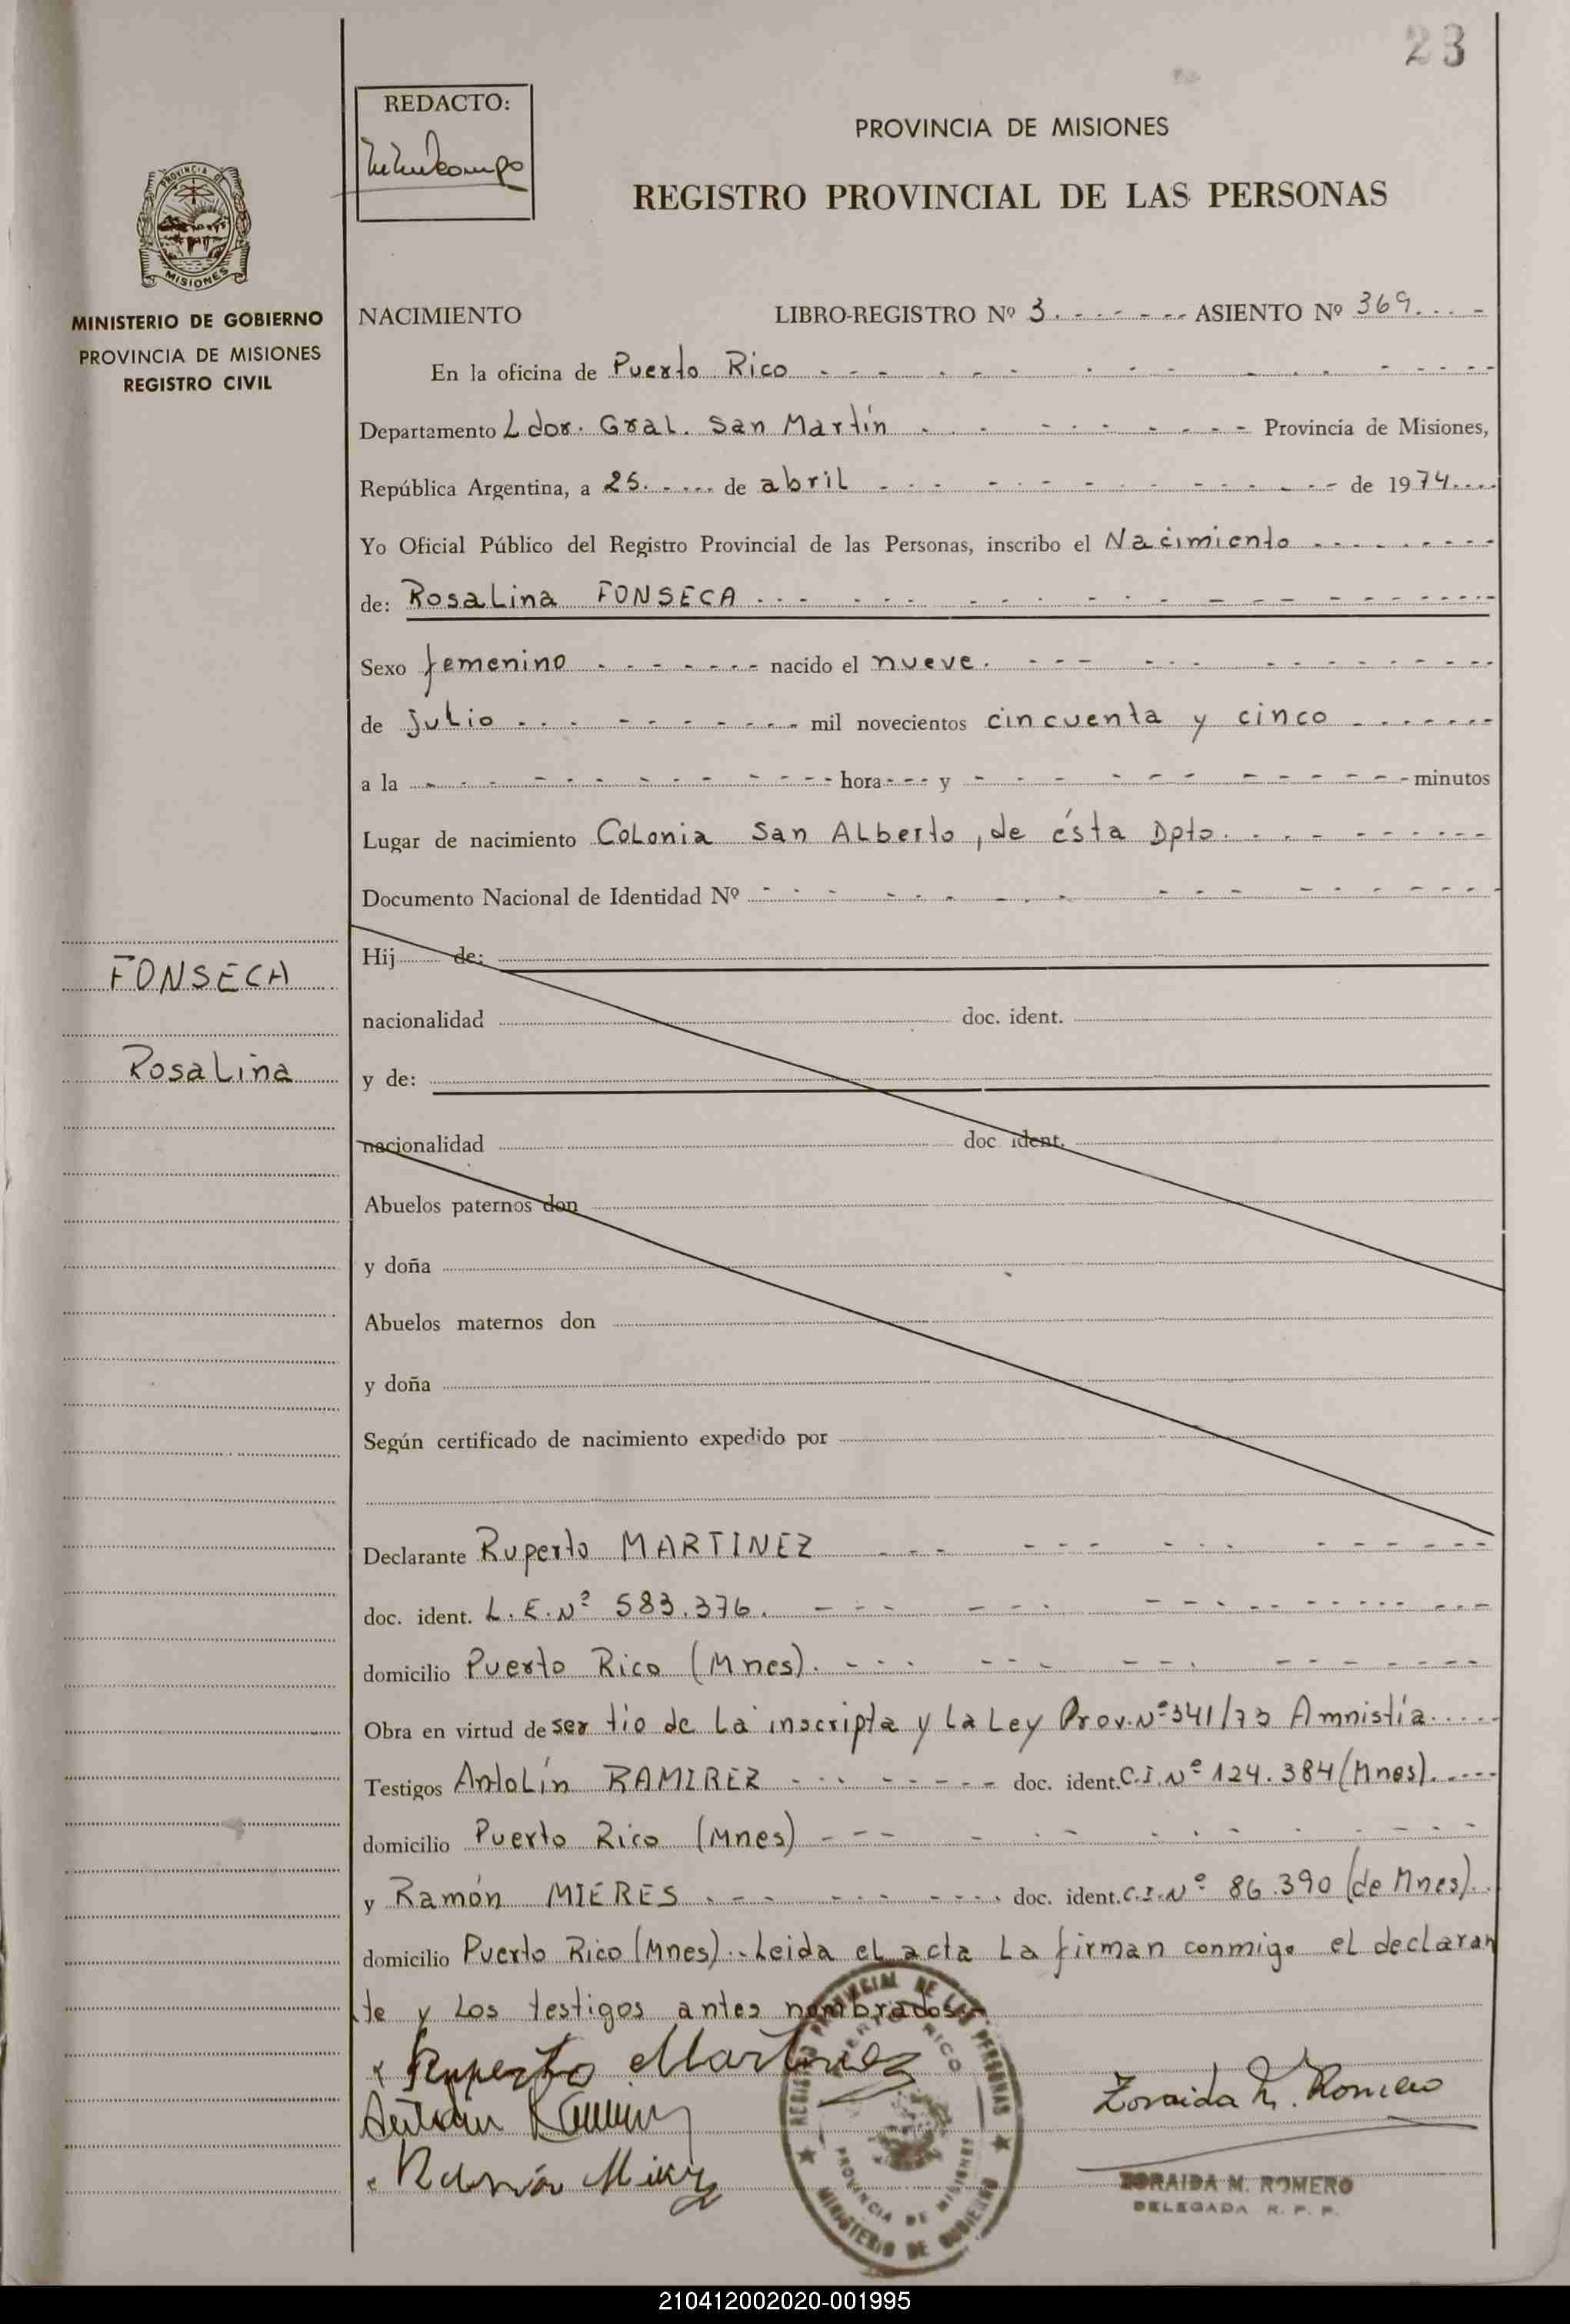 23
REDACTO:
PROVINCIA DE MISIONES
REGISTRO PROVINCIAL DE LAS PERSONAS
PROVINCIA DE
MISIONES
MINISTERIO DE GOBIERNO
PROVINCIA DE MISIONES
REGISTRO CIVIL
NACIMIENTO LIBRO-REGISTRO Nº 3 ASIENTO Nº 369
En la oficina de Puerto Rico
Departamento Ldor. Gral. San Martín Provincia de Misiones,
República Argentina, a 25 de abril de 1974
Yo Oficial Público del Registro Provincial de las Personas, inscribo el Nacimiento
de: Rosalina FONSECA
Sexo femenino nacido el nueve
de julio mil novecientos cincuenta y cinco
a la hora y minutos
Lugar de nacimiento Colonia San Alberto, de ésta Dpto.
Documento Nacional de Identidad Nº
FONSECA
Rosalina
Hij de:
nacionalidad doc. ident.
y de:
nacionalidad doc. ident.
Abuelos paternos don
y doña
Abuelos maternos don
y doña
Según certificado de nacimiento expedido por
Declarante Ruperto MARTINEZ
doc. ident. L.E.Nº 583.376.
domicilio Puerto Rico (Mnes).
Obra en virtud de ser tío de la inscripta y la Ley Prov. Nº 341/73 Amnistía
Testigos Antolín RAMIREZ doc. ident. C.I.Nº 124.384 (Mnes).
domicilio Puerto Rico (Mnes)
y Ramón MIERES doc. ident. C.I.Nº 86.390 (de Mnes).
domicilio Puerto Rico (Mnes).. Leida el acta la firman conmigo el declaran
te y los testigos antes nombrados
Ruperto Martinez
Antolin Ramirez
Ramón Mieres
Zoraida M. Romero
REGISTRO PROVINCIAL DE LAS PERSONAS
PUERTO RICO
PROVINCIA DE MISIONES
MINISTERIO DE GOBIERNO
ZORAIDA M. ROMERO
DELEGADA R. P. P.
210412002020-001995